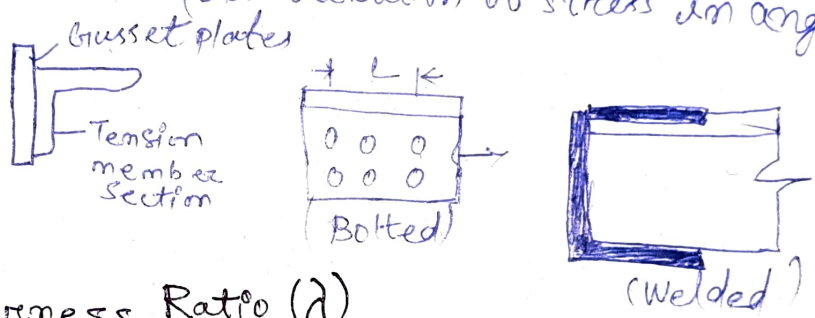 stress in ang
Gusset plates
L
Tension
member
Section
(Bolted)
(Welded)
rness Ratio (λ)